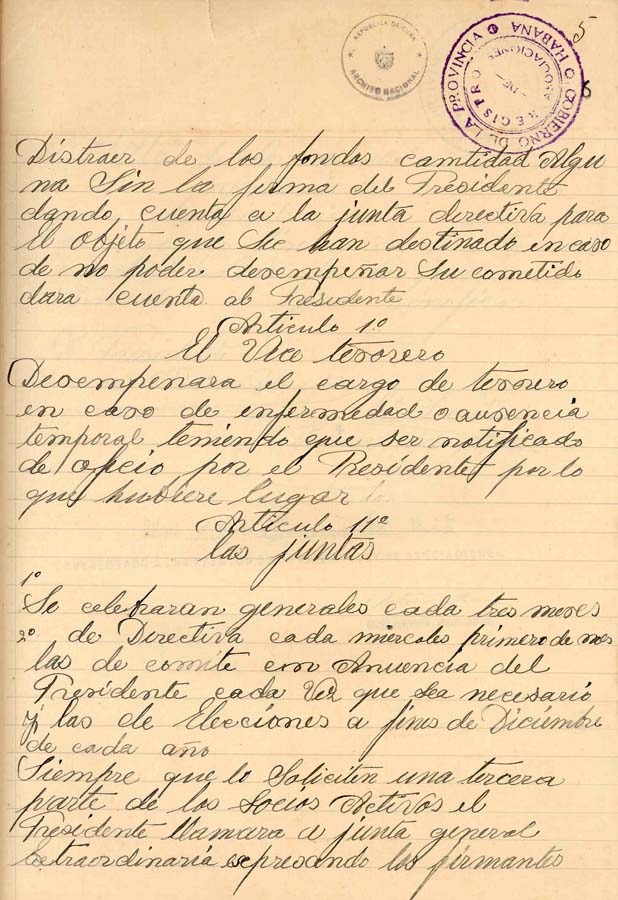 5
6
REPUBLICA DE CUBA
ARCHIVO NACIONAL
GOBIERNO DE LA PROVINCIA
HABANA
REGISTRO
DE
ASOCIACIONES
Distraer de los fondos cantidad Algu
na Sin la firma del Presidente
dando cuenta a la junta directiva para
el objeto que Se han destinado en caso
de no poder desempeñar Su cometido
dara cuenta al Presidente
Articulo 1º
El Vice tesorero
Desempenara el cargo de tesorero
en caso de enfermedad o ausencia
temporal teniendo que ser notificado
de oficio por el Presidente por lo
que hubiere lugar
Articulo 11º
las juntas
1º
Se celebraran generales cada tres meses
2º de Directiva cada miercoles primero de mes
las de comite con Anuencia del
Presidente cada Vez que sea necesario
y las de Elecciones a fines de Diciembre
de cada año
Siempre que lo Soliciten una tercera
parte de los Socios Activos el
Presidente llamara a junta general
extraordinaria expresando los firmantes